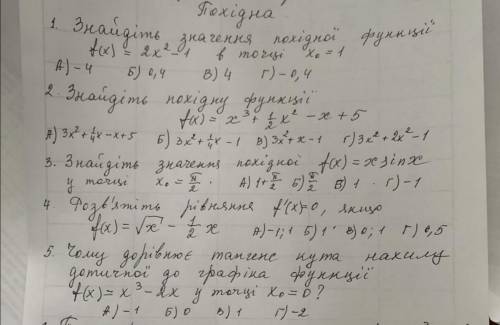 Похідна
1. Знайдіть значення похідної функції
f(x) = 2x² - 1 в точці x₀ = 1
А) -4 Б) 0,4 В) 4 Г) -0,4
2. Знайдіть похідну функції
f(x) = x³ + 1/2 x² - x + 5
А) 3x² + 1/4 x - x + 5 Б) 3x² + 1/4 x - 1 В) 3x² + x - 1 Г) 3x² + 2x² - 1
3. Знайдіть значення похідної f(x) = x sin x
у точці x₀ = π/2. А) 1 + π/2 Б) π/2 В) 1 Г) -1
4. Розв'яжіть рівняння f'(x) = 0, якщо
f(x) = √x - 1/2 x А) -1; 1 Б) 1 В) 0; 1 Г) 0,5
5. Чому дорівнює тангенс кута нахилу
дотичної до графіка функції
f(x) = x³ - 2x у точці x₀ = 0?
А) -1 Б) 0 В) 1 Г) -2